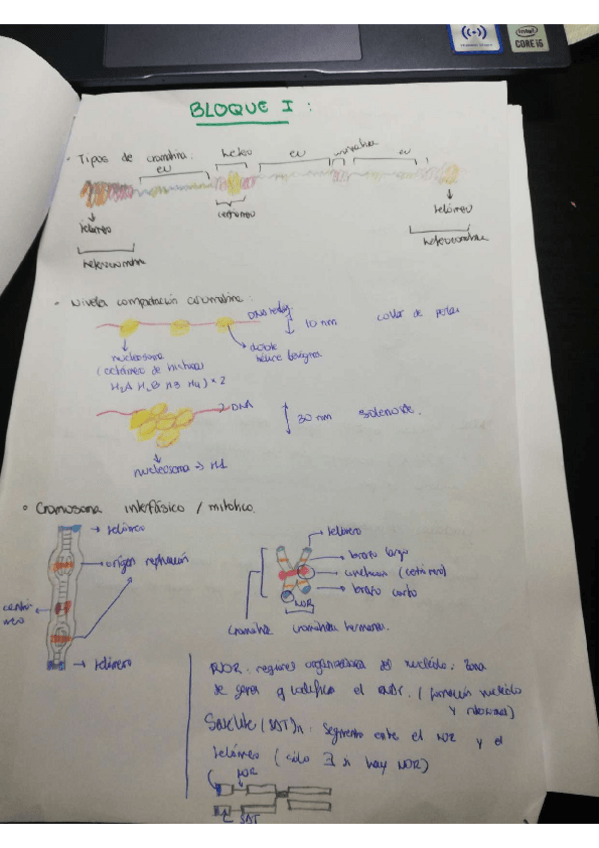 intel
CORE i5
BLOQUE I :
· Tipos de cromatina:
eu
hetero
eu
eu
telómero
centrómero
telómero
heterocromatina
heterocromatina
· Niveles compactación cromatina:
DNA
10 nm
collar de perlas
nucleosoma
(octámero de histonas
H2A H2B H3 H4) x 2
doble
hélice
DNA
30 nm
solenoide.
nucleosoma → H1
· Cromosoma interfásico / mitótico.
→ telómero
→ telómero
→ origen replicación
→ brazo largo
(centrómero)
→ brazo corto
centró
mero
NOR
→ telómero
cromátida
cromátidas hermanas.
NOR: regiones organizadora del nucleolo: zona
de genes q codifica el RNAr. (formación nucleolo
y ribosomas)
Satélite (SAT)n: Segmento entre el NOR y el
telómero (sólo ∃ si hay NOR)
NOR
SAT